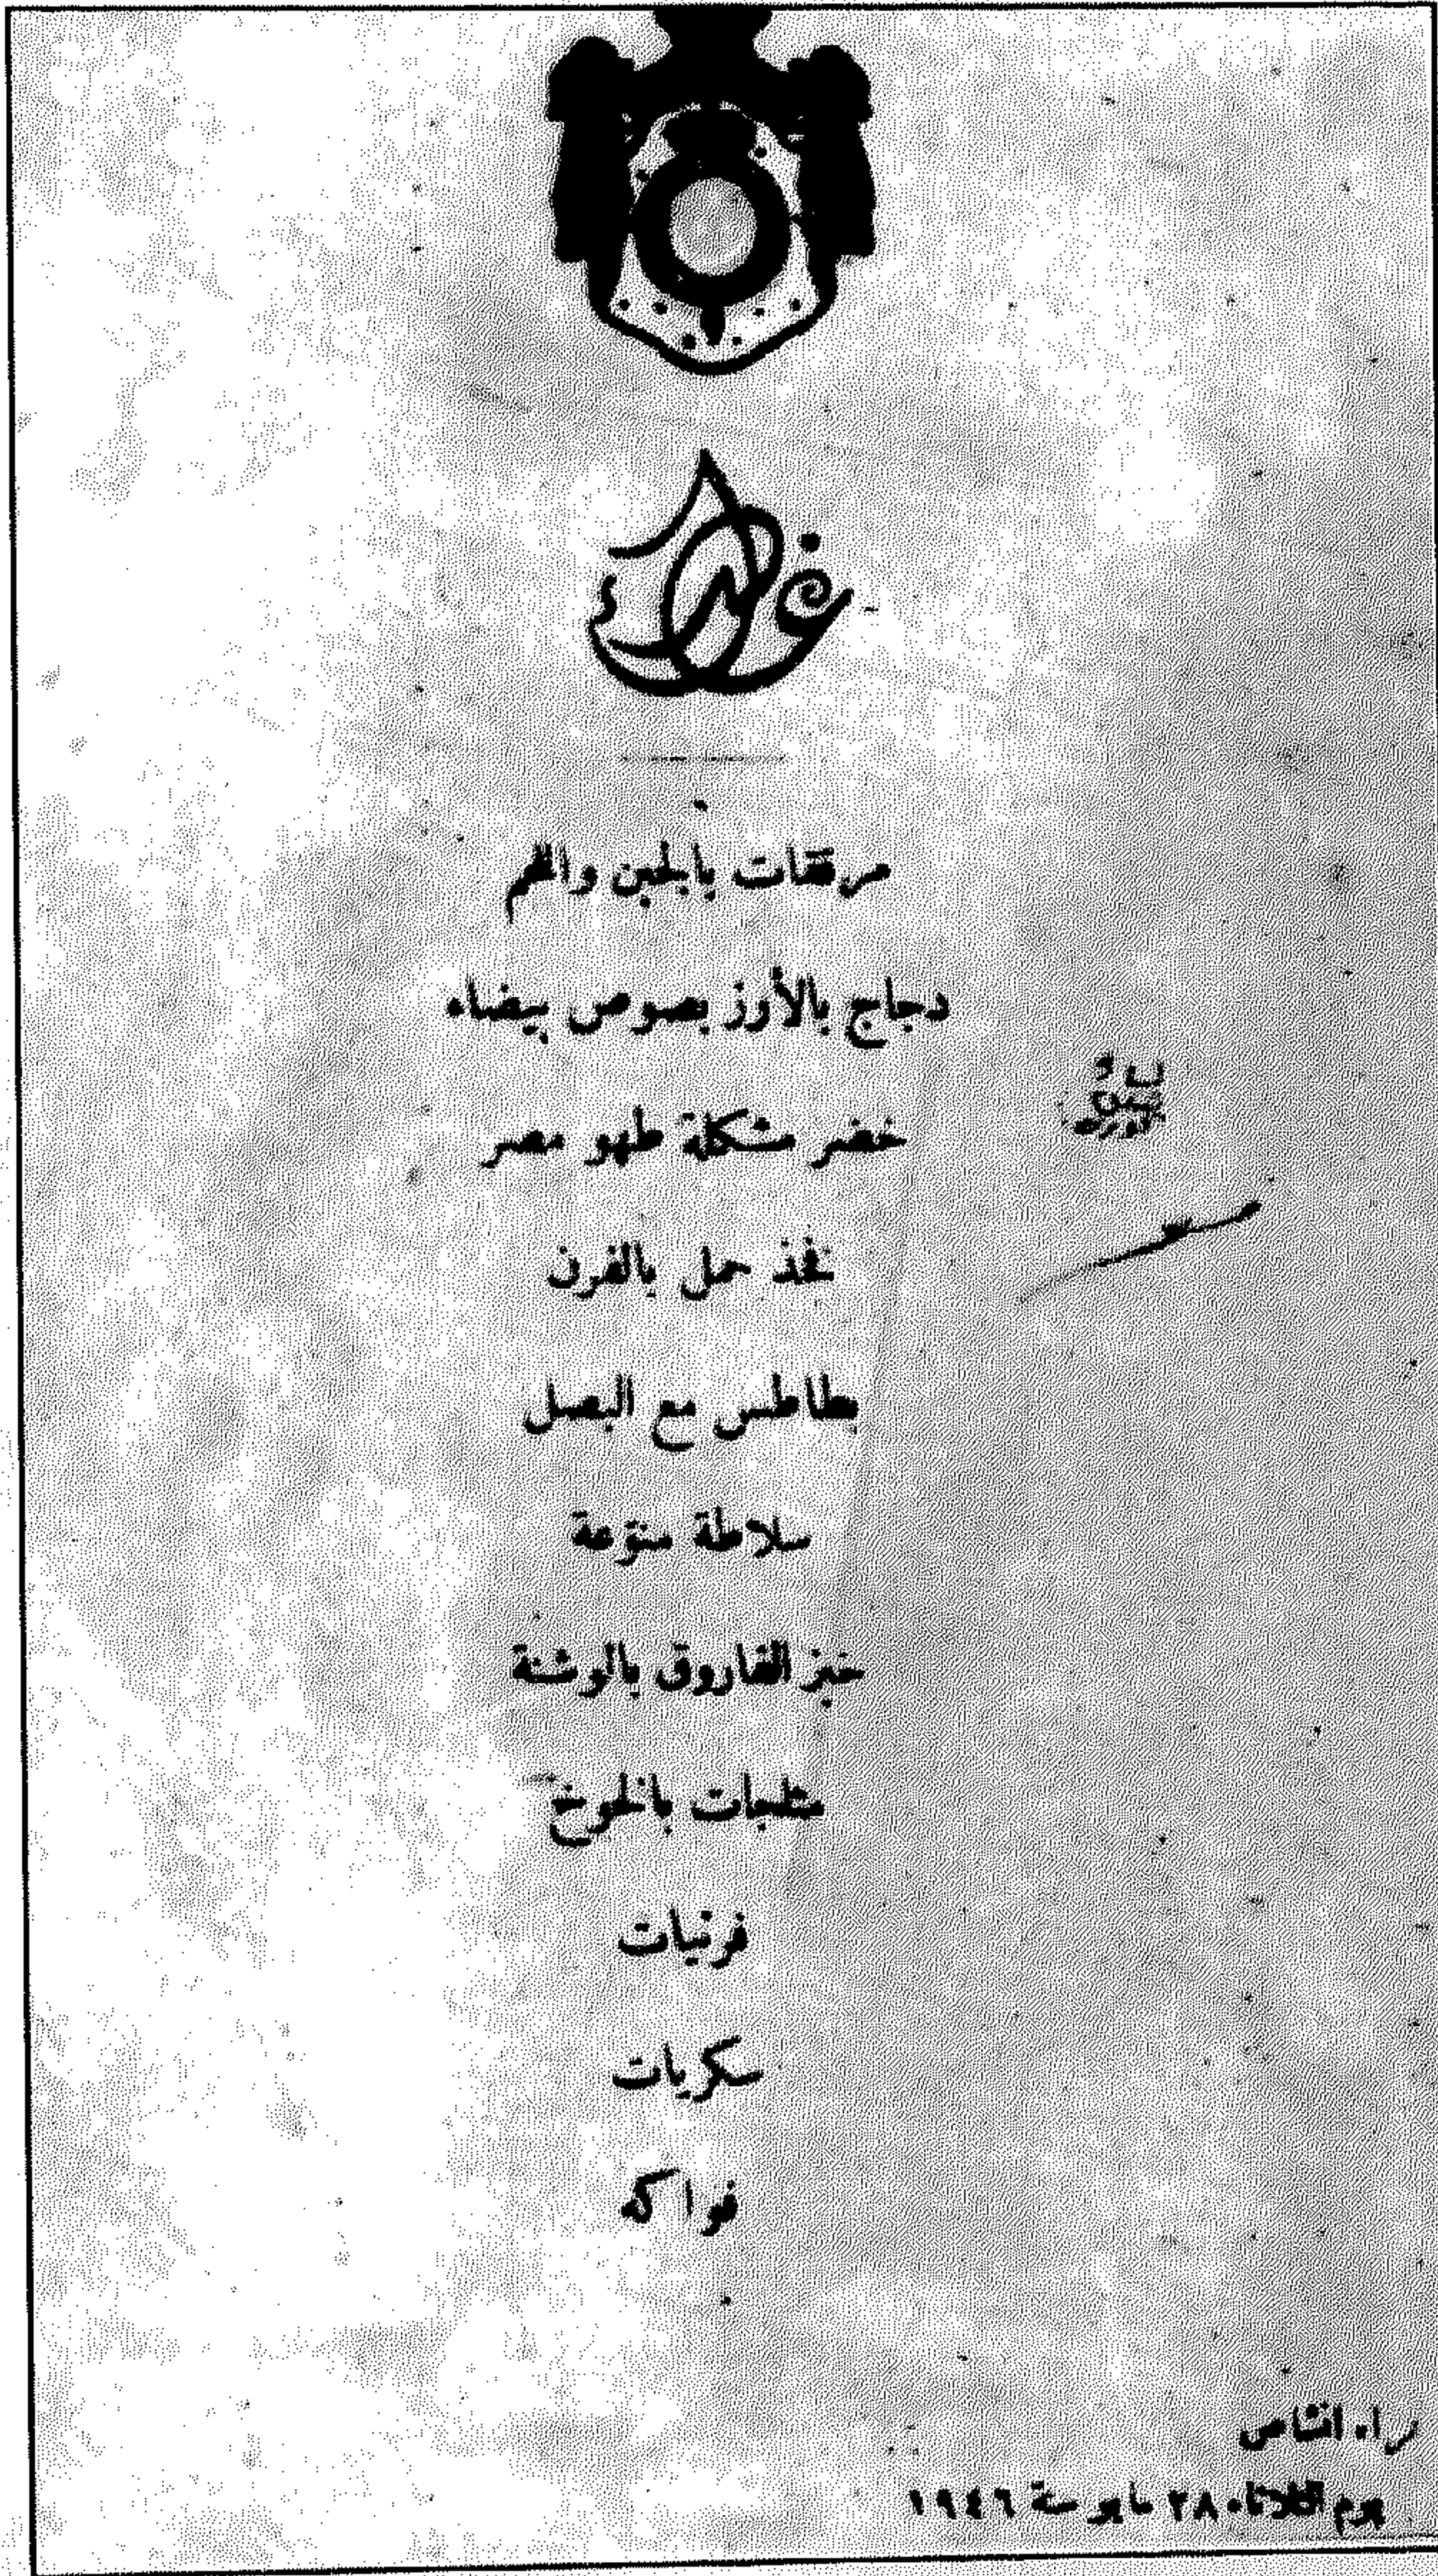 غداء
مرققات بالجبن واللحم
دجاج بالأرز بصوص بيضاء
خضر مشكلة طهو مصر
فخذ حمل بالفرن
بطاطس مع البصل
سلاطة منوّعة
خبز الفاروق بالوشنة
مثلجات بالخوخ
فرنيات
سكريات
فواكه
انشاص
يوم الثلاثاء ٢٨ مايو سنة ١٩٤٦